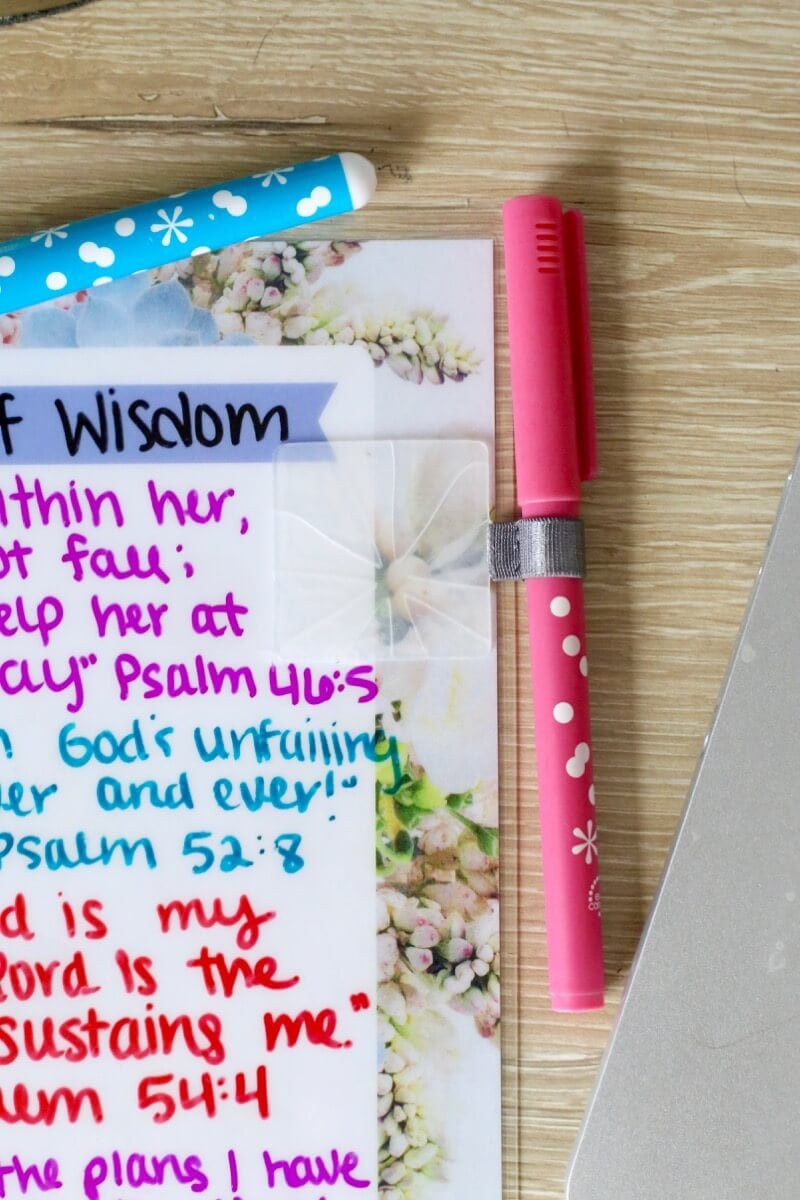 f Wisdom
ithin her,
ot fall;
elp her at
ay" Psalm 46:5
n God's unfailing
er and ever!"
Psalm 52:8
d is my
Lord is the
sustains me."
alm 54:4
the plans I have